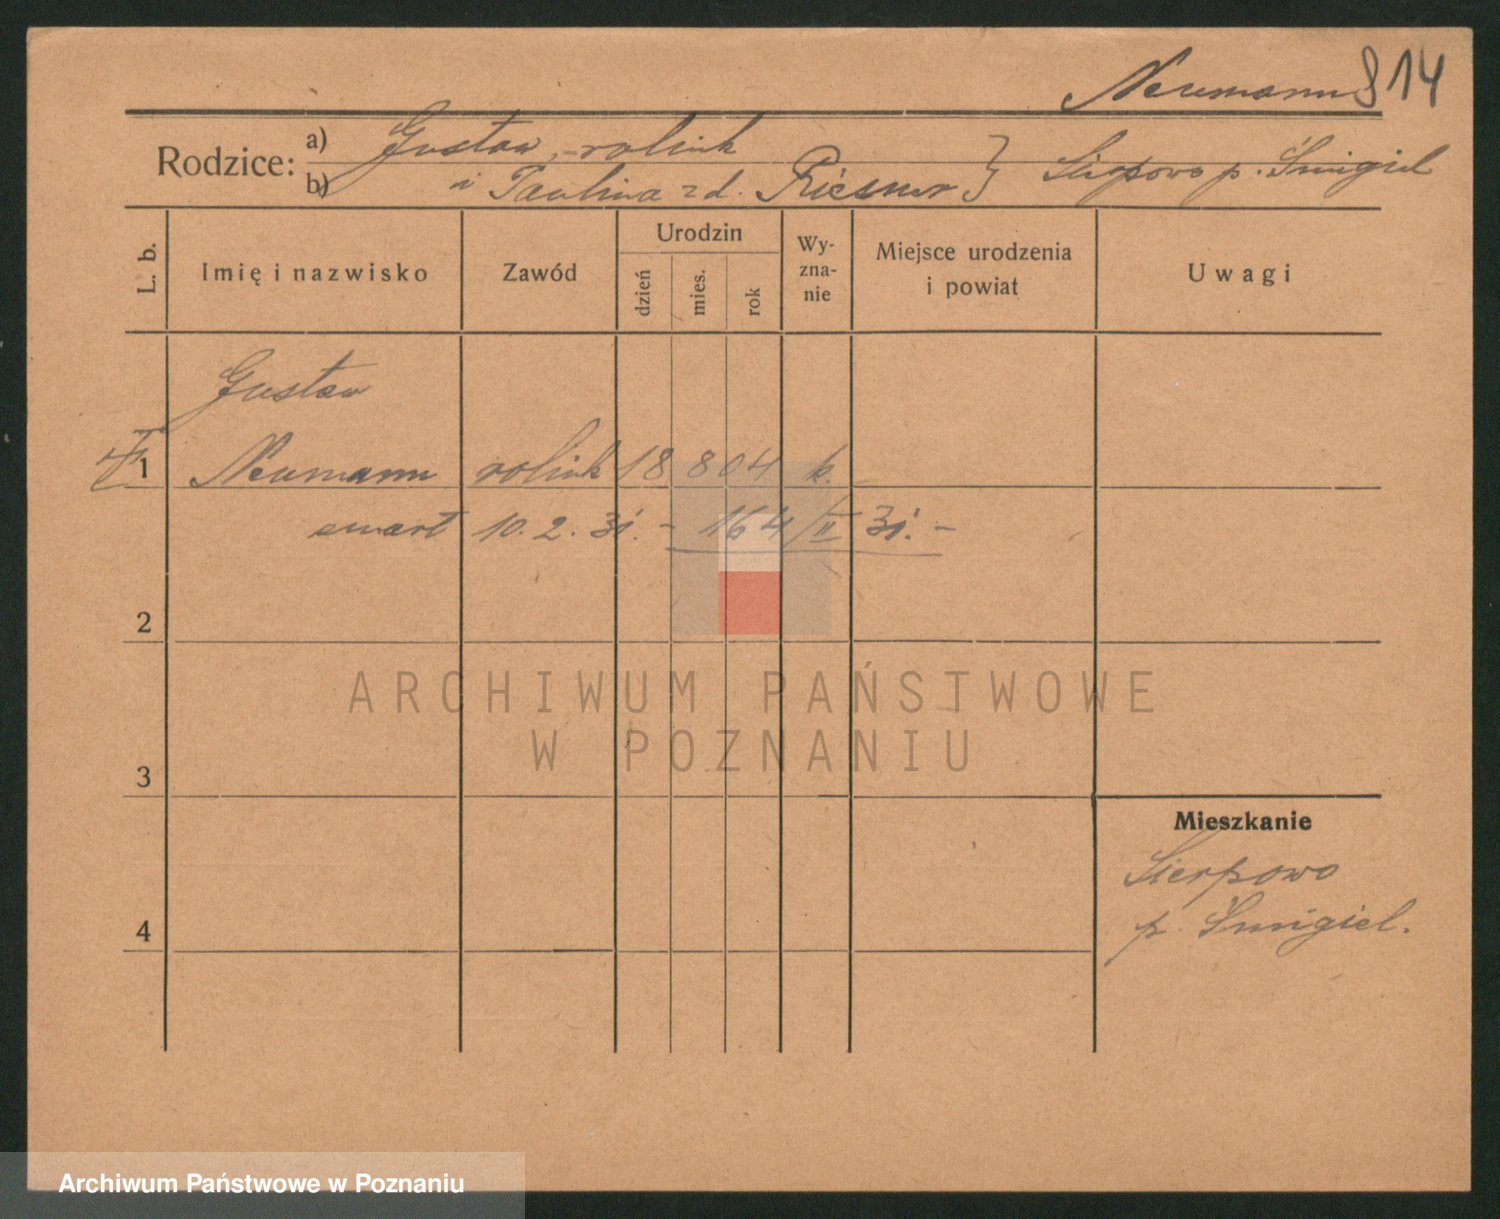 Neumann 814
Rodzice: a) Gustaw, rolnik
b) i Paulina z d. } Sierpowo p. Śmigiel
L. b. Imię i nazwisko Zawód Urodzin Wy-zna-nie Miejsce urodzenia i powiat Uwagi
dzień mies. rok
Gustaw
1 Neumann rolnik 18 8 04 k.
zmarł 10.2.31. - 164/II 31. -
2
ARCHIWUM PAŃSTWOWE
W POZNANIU
3
Mieszkanie
Sierpowo
4
p. Śmigiel.
Archiwum Państwowe w Poznaniu